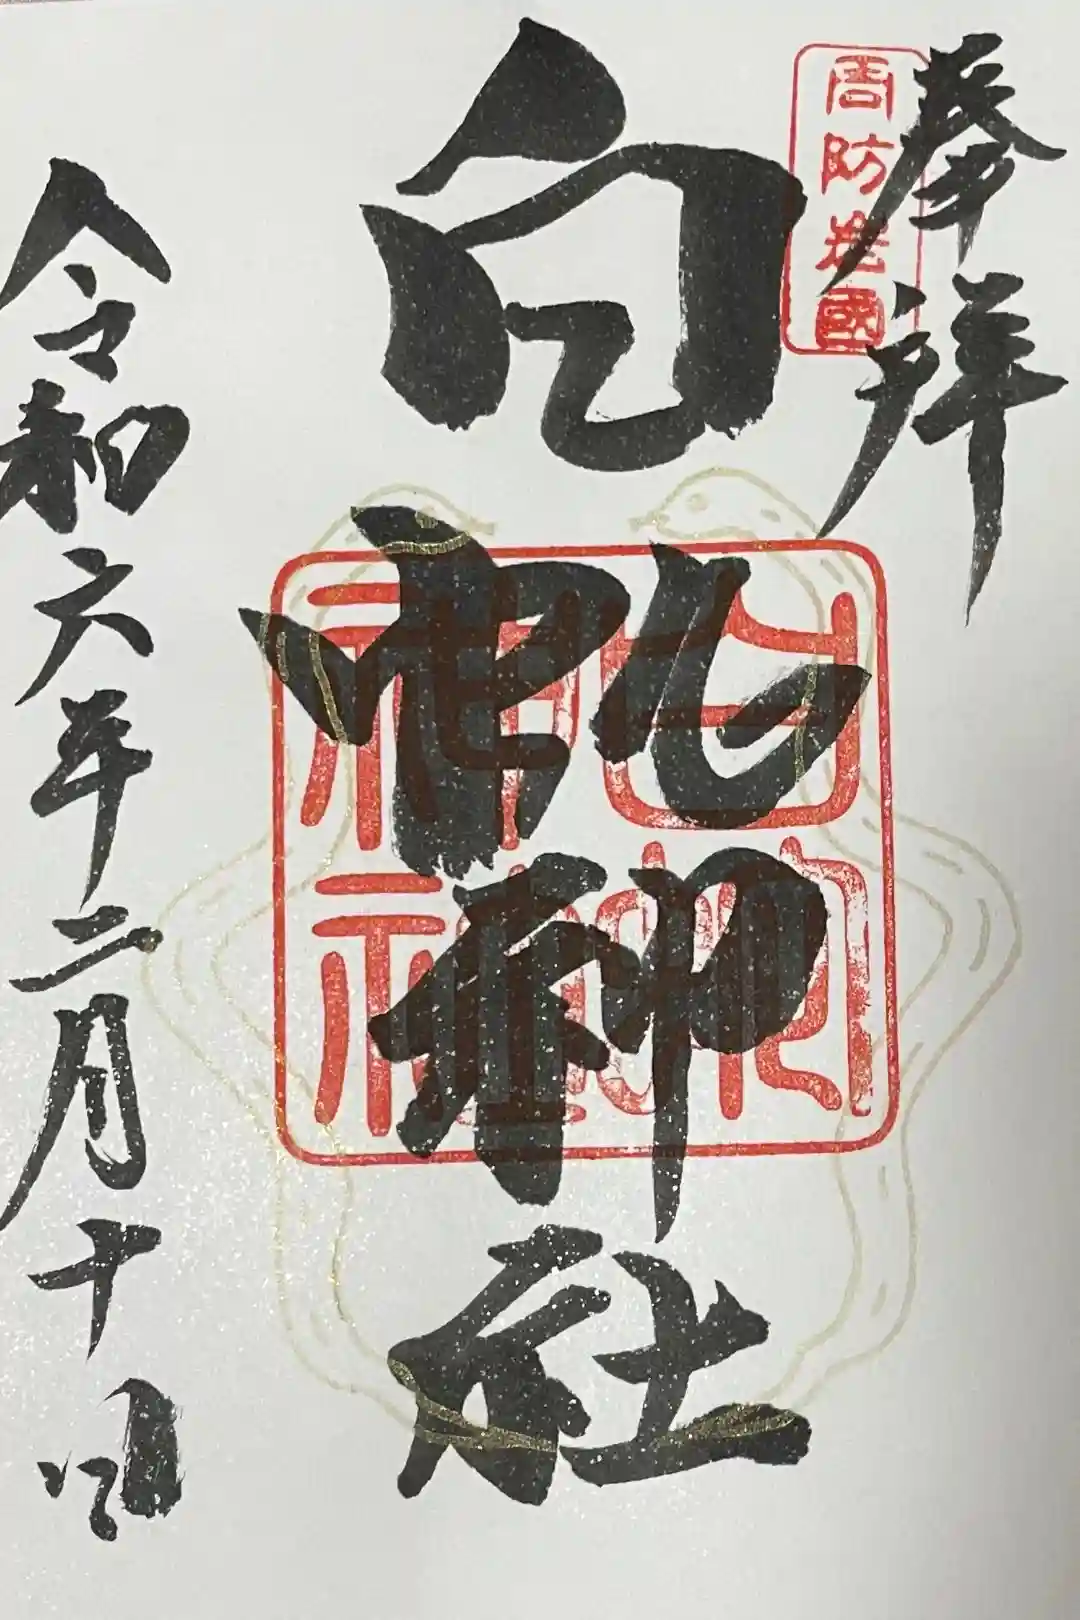 奉拝
周防岩國
白蛇神社
白蛇神社
令和六年二月十一日